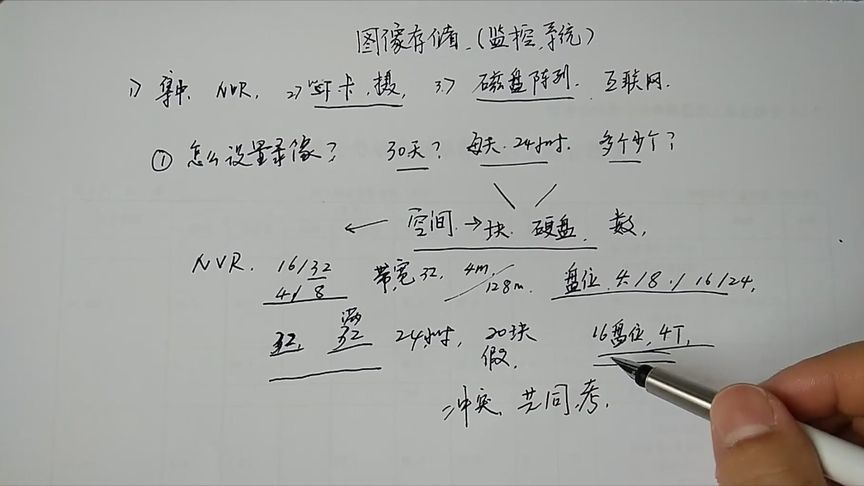 图像存储.(监控.系统)
1) 集中 NVR. 2) 卡.摄. 3.) 磁盘阵列. 互联网.
① 怎么设置录像? 30天? 每天.24小时. 多个少个?
← 空间.→块.硬盘.数,
NVR. 16/32 带宽32. 4m. 盘位.4/8./16/24,
4/8 128m.
满
32. 32 24小时, 20块 16盘位,4T.
假.
冲突、共同.考.